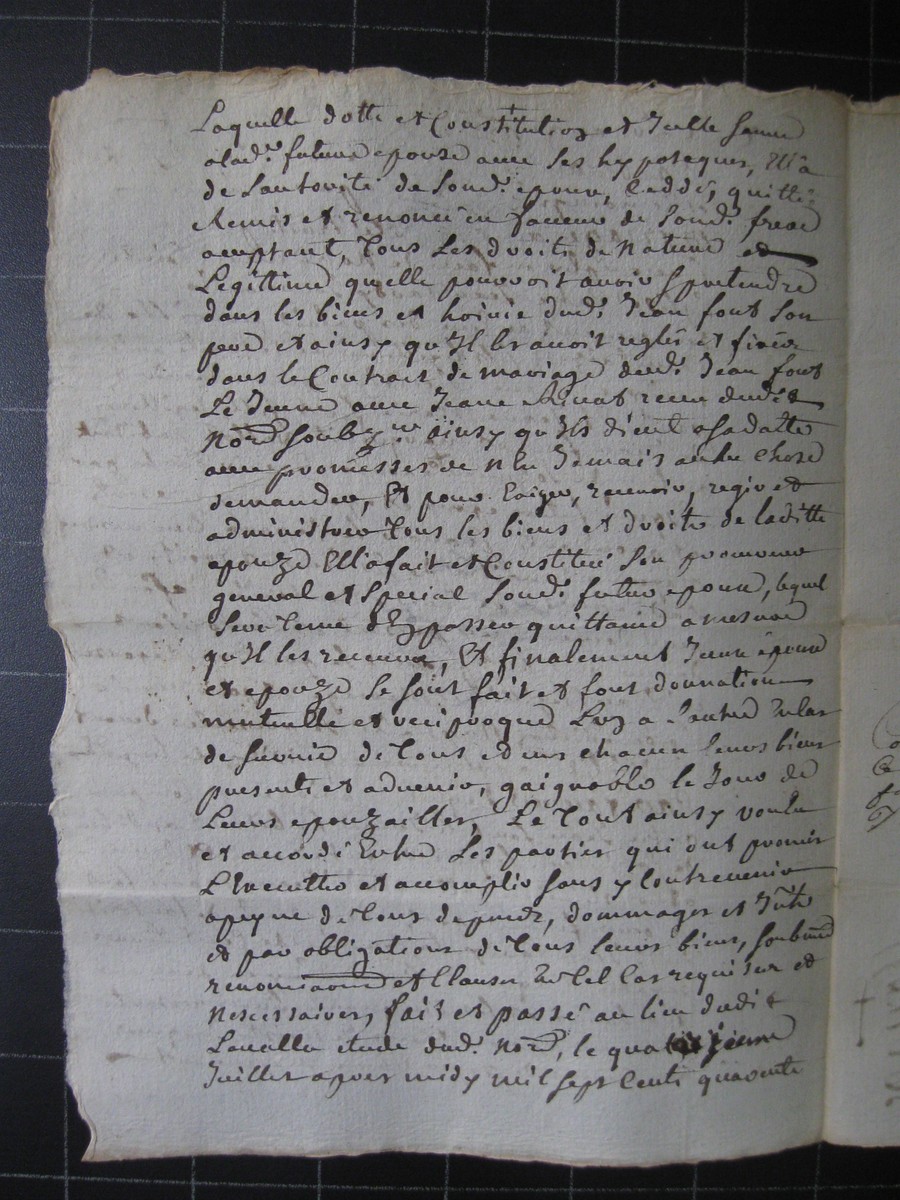 Laquelle dotte et Constitution et Icelle
alad.e future epouse avec ses hypoteques, Ell'a
de Lautorité de Sond.t epoux, Ceddé, quitté
Remis et renoncé en faveur de Sond.t frere
acceptant, Tous Les droits de Nature et
Legitime quelle pouvvoit avoir & pretendre
dans les biens et hoirie dud.t Jean font Son
pere et ainsy qu'Il les avoit reglés et fixés
dans le Contrait de mariage dud.t Jean font
Le Jeune avec Jeane receu dudit
No.re soubz.né ainsy qu'Ils dient a sa datte
avec promesses de n'en Jamais autre Chose
demander, Et pour Exiger, recevoir, regir et
administrer Tous les biens et droits de laditte
epouze Ell'a fait et Constitué Son procureur
general et special Sond.t futur epoux, lequel
Sera Tenu d'En passer quittance a mesure
qu'Il les recevra, Et finalement epoux
et epouze Se sont fait et font donnation
mutuelle et reciproque L'un a Lautre En cas
de Survie de Tous et uns chacun leurs biens
presents et advenir, gaignable le Jour de
Leurs epouzailles, Le Tout ainsy voulu
et accordé Entre Les parties qui ont promis
L'Executter et accomplir sans y Contrevenir
a peyne de Tous depends, dommages et Ints
et par obligations de Tous leurs biens, soubm.ons
renonciaons et Clauses En tel Cas requises et
Nescessaires, fait et passé au lieu dudit
Lavalla etude dud.t No.re, le
Juillet apres midy mil sept Cents quarente